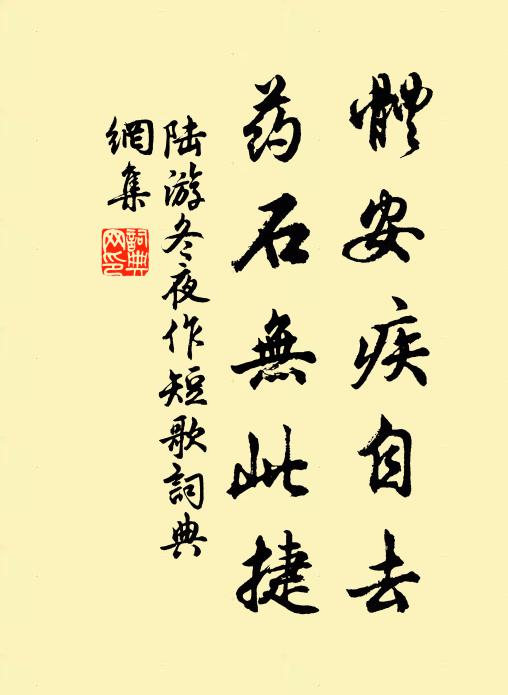 體安疾自去
药石無此捷
陆游冬夜作短歌詞典
網集
詞典
网印